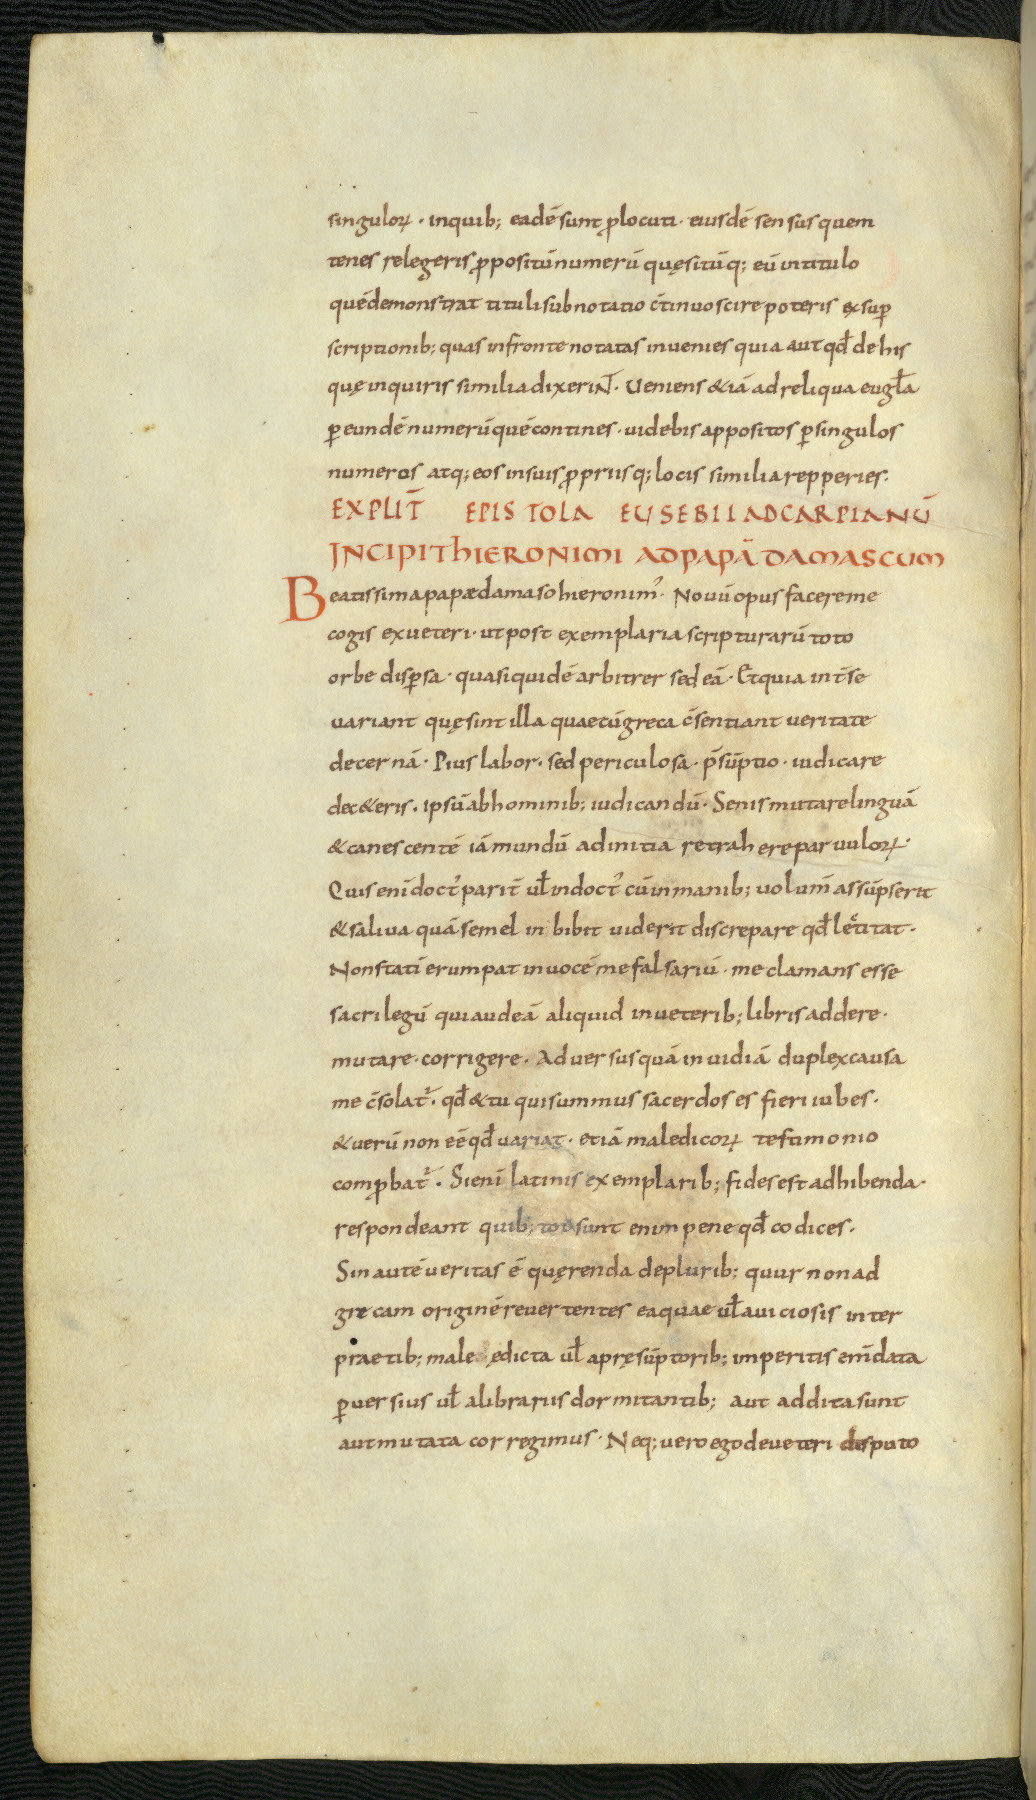 singuloꝝ · inquib; eadē sunt ꝓlocuti · eiusdē sensus quem
tenes relegeris ꝓpositū numerū quęsitūq; eū intitulo
quē demonstrat tituli subnotatio c̄tinuo scire poteris exsuꝑ
scriptionib; quas infronte notatas inuenies quia aut qđ de his
quę inquiris similia dixeriN̄T · Ueniens &iā ad reliqua eugła
ꝑ eundē numerū quē contines · uidebis appositos ꝑ singulos
numeros atq; eos insuis ꝓpriisq; locis similia repperies.
EXPLIT̄ EPISTOLA EUSEBII AD CARPIANŪ
INCIPIT hIERONIMI AD PAPĀ DAMASCUM
Beatissima papæ damaso hieronimꝰ · Nouū opus facere me
cogis exueteri · ut post exemplaria scripturarū toto
orbe disꝑsa · quasi quidē arbitrer sedeā · Et quia int̄ se
uariant quę sint illa quae cū greca c̄sentiant ueritate
decernā · Pius labor · sed periculosa · p̄sūptio · iudicare
dec&eris · ipsū abhominib; iudicandū · Senis mutare linguā
& canescentē iā mundū adinitia retrahere paruuloꝝ ·
Quis enī doctꝰ parit̄ uł indoctꝰ cū inmanib; uolum̄ assūpserit
& saliua quā semel inbibit uiderit discrepare qđ lētitat ·
Non statī erumpat inuocē me falsariū · me clamans esse
sacrilegū qui audeā aliquid inueterib; libris addere ·
mutare · corrigere · Aduersus quā inuidiā duplex causa
me c̄solat᷑ · qđ & tu qui summus sacerdos es fieri iubes ·
& uerū non eē qđ uariat · etiā maledicoꝝ testimonio
comꝓbat᷑ · Si enī latinis exemplarib; fides est adhibenda ·
respondeant quib; tot sunt enim pene qđ codices ·
Sin autē ueritas ē quęrenda deplurib; quur non ad
grecam originē reuertentes ea quae uł auiciosis inter
praetib; male ędicta uł apręsūptorib; imperitis em̄data
ꝑuersius uł alibrariis dormitantib; aut addita sunt
aut mutata corregimus · Neq; uero ego deueteri disputo